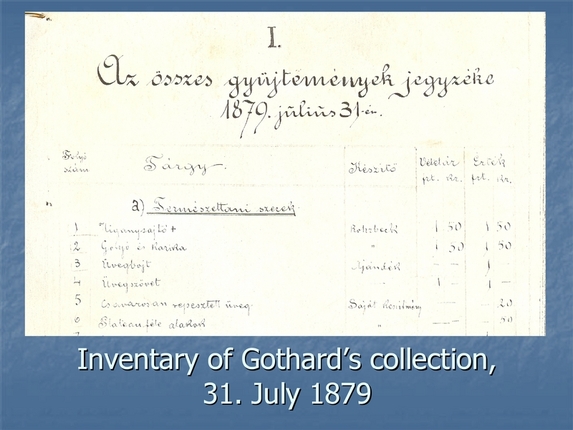 I.
Az összes gyüjtemények jegyzéke
1879. július 31-én.
Folyó szám Tárgy Készitő Vételár Érték
frt. kr. frt. kr.
a) Természettani szerek
1 Rohrbeck 1 50 1 50
2 Golyó és karika " 1 50 1 50
3 Üvegbojt Ajándék — — 1
4 Üvegszövet " — — 1 —
5 Csavarosan repesztett üveg Saját készitmény — — 20
6 alakok " — — 50
Inventary of Gothard's collection,
31. July 1879